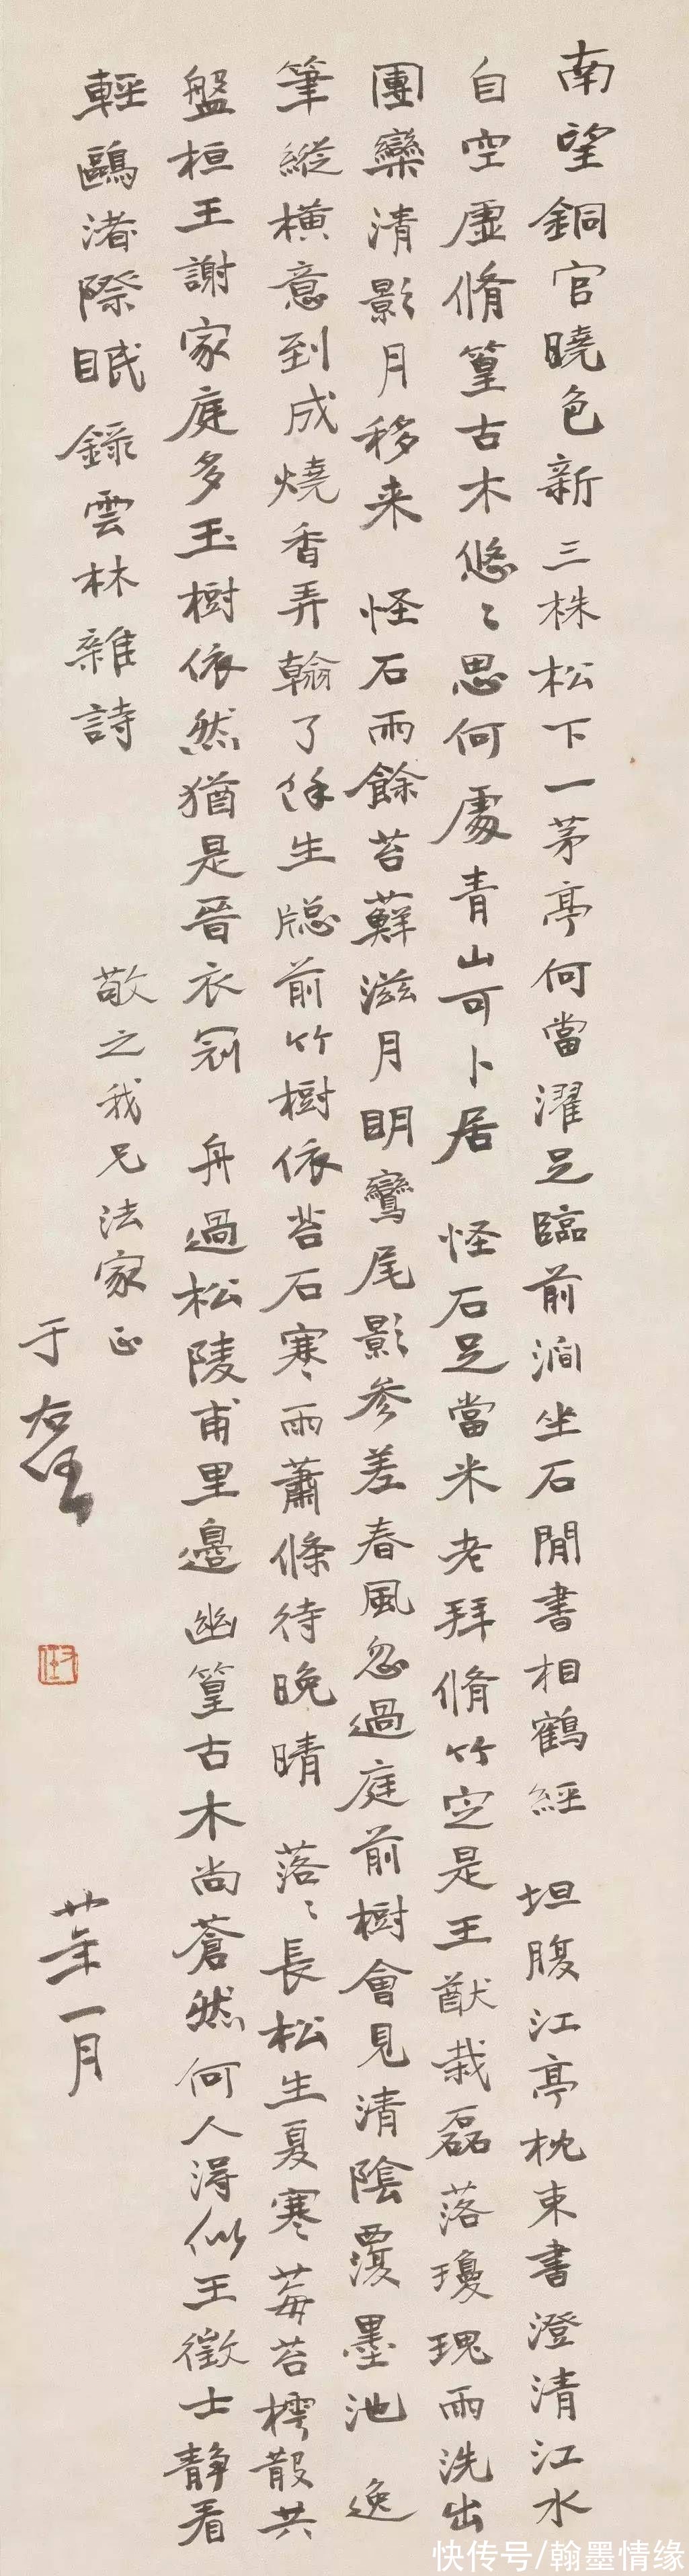 南望銅官曉色新三株松下一茅亭何當濯足臨前澗坐石閒書相鶴經 坦腹江亭枕束書澄清江水
自空虛脩篁古木悠〻思何處青山可卜居 怪石足當米老拜脩竹定是王猷栽磊落瓊瑰雨洗出
團欒清影月移来 怪石雨餘苔蘚滋月明鸞尾影参差春風忽過庭前樹會見清陰覆墨池 逸
筆縱橫意到成燒香弄翰了餘生牕前竹樹依苔石寒雨蕭條待晚晴 落〻長松生夏寒莓苔樗散共
盤桓王謝家庭多玉樹依然猶是晉衣冠 舟過松陵甫里邊幽篁古木尚蒼然何人得似王徵士静看
輕鷗渚際眠 錄雲林雜詩
敬之我兄法家正
于右任
廿年一月
快传号/翰墨情缘